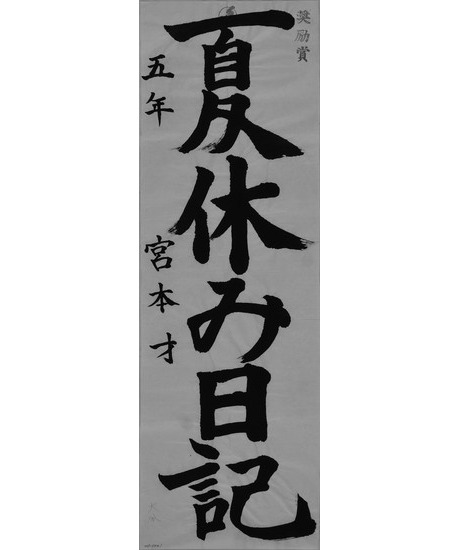 奨励賞
夏休み日記
五年 宮本才